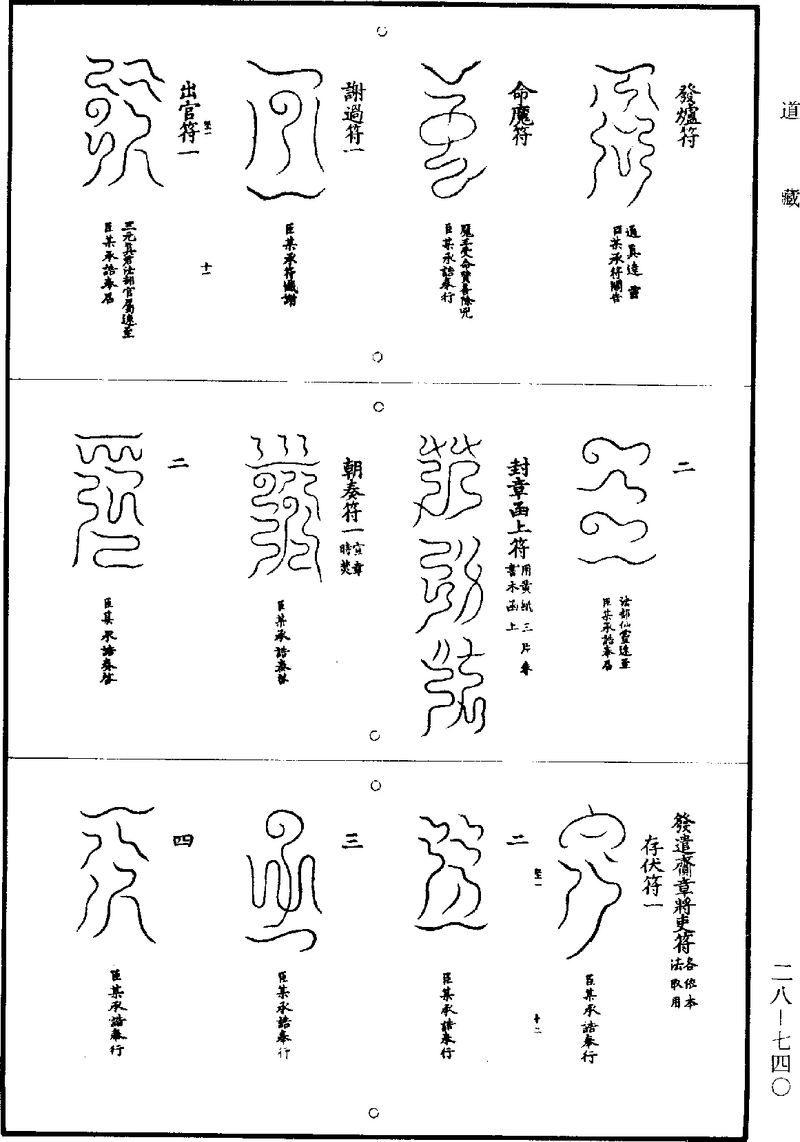 道藏
發爐符
臣某承符關告
命魔符
魔王受命贊善除兇
臣某承誥奉行
謝過符一
臣某承符懺謝
出官符一
三元真君法部官屬速至
臣某承誥奉居
十一
二
法部仙靈速至
臣某承誥奉居
封章函上符
用黃紙三片奉
書木函上
朝奏符一
宣章
時焚
臣某承誥奏啓
二
臣某承誥奏啓
發遣齋章將吏符
各依本
法取用
存伏符一
臣某承誥奉行
十二
二
臣某承誥奉行
三
臣某承誥奉行
四
臣某承誥奉行
二八—七四〇